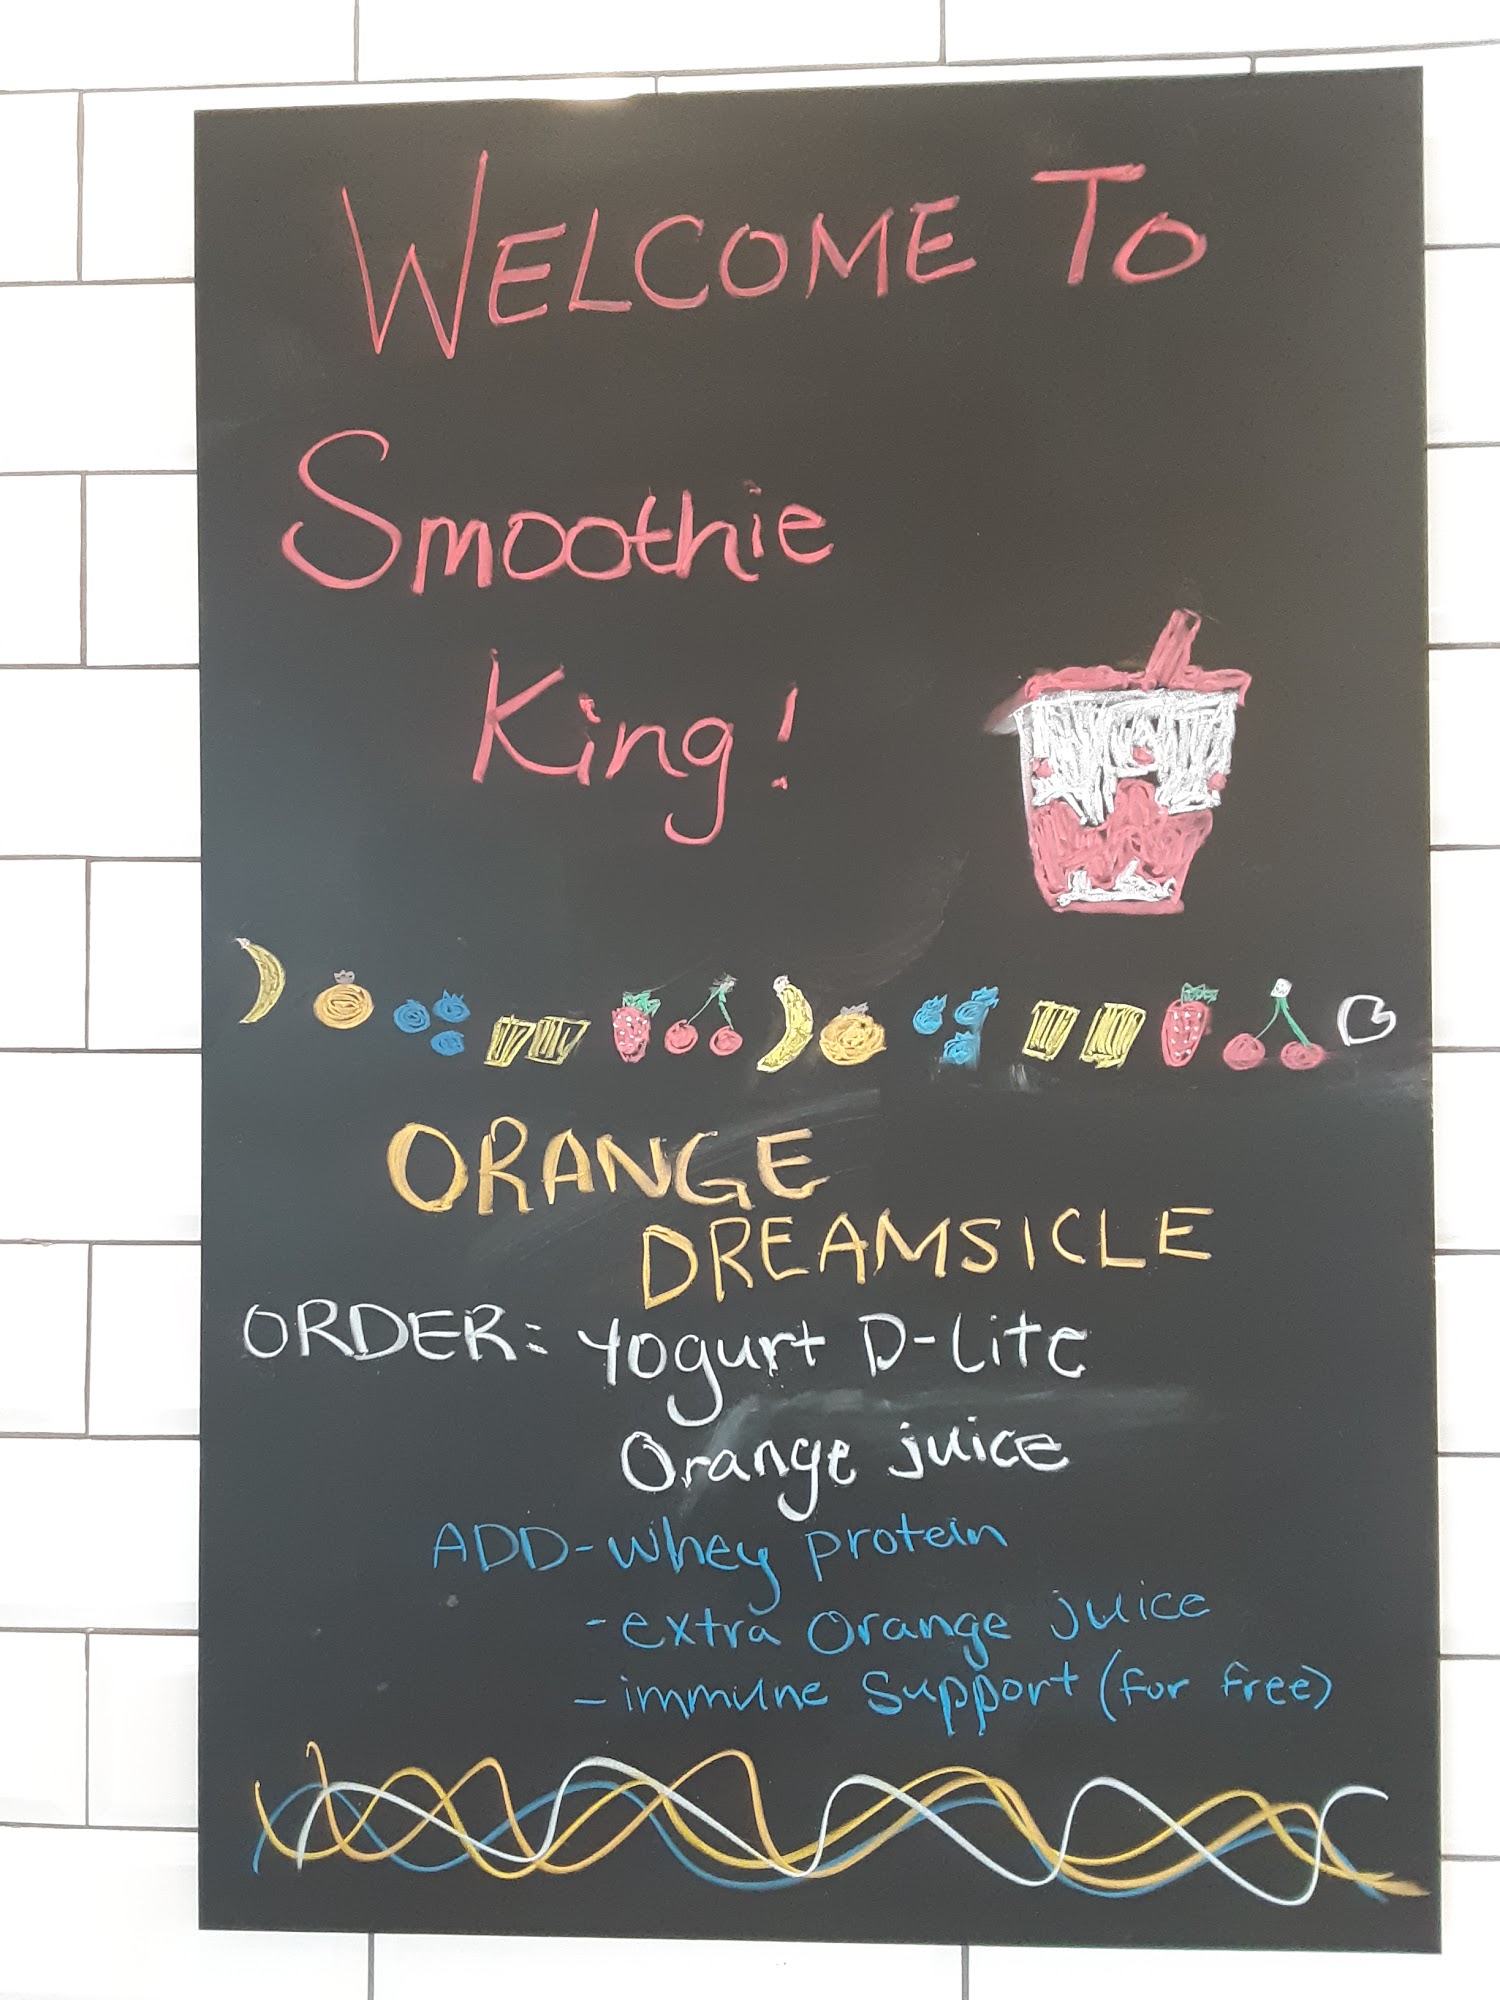 WELCOME TO
Smoothie
King!
ORANGE
DREAMSICLE
ORDER: Yogurt D-Lite
Orange juice
ADD-Whey protein
-extra Orange juice
-immune Support (for free)